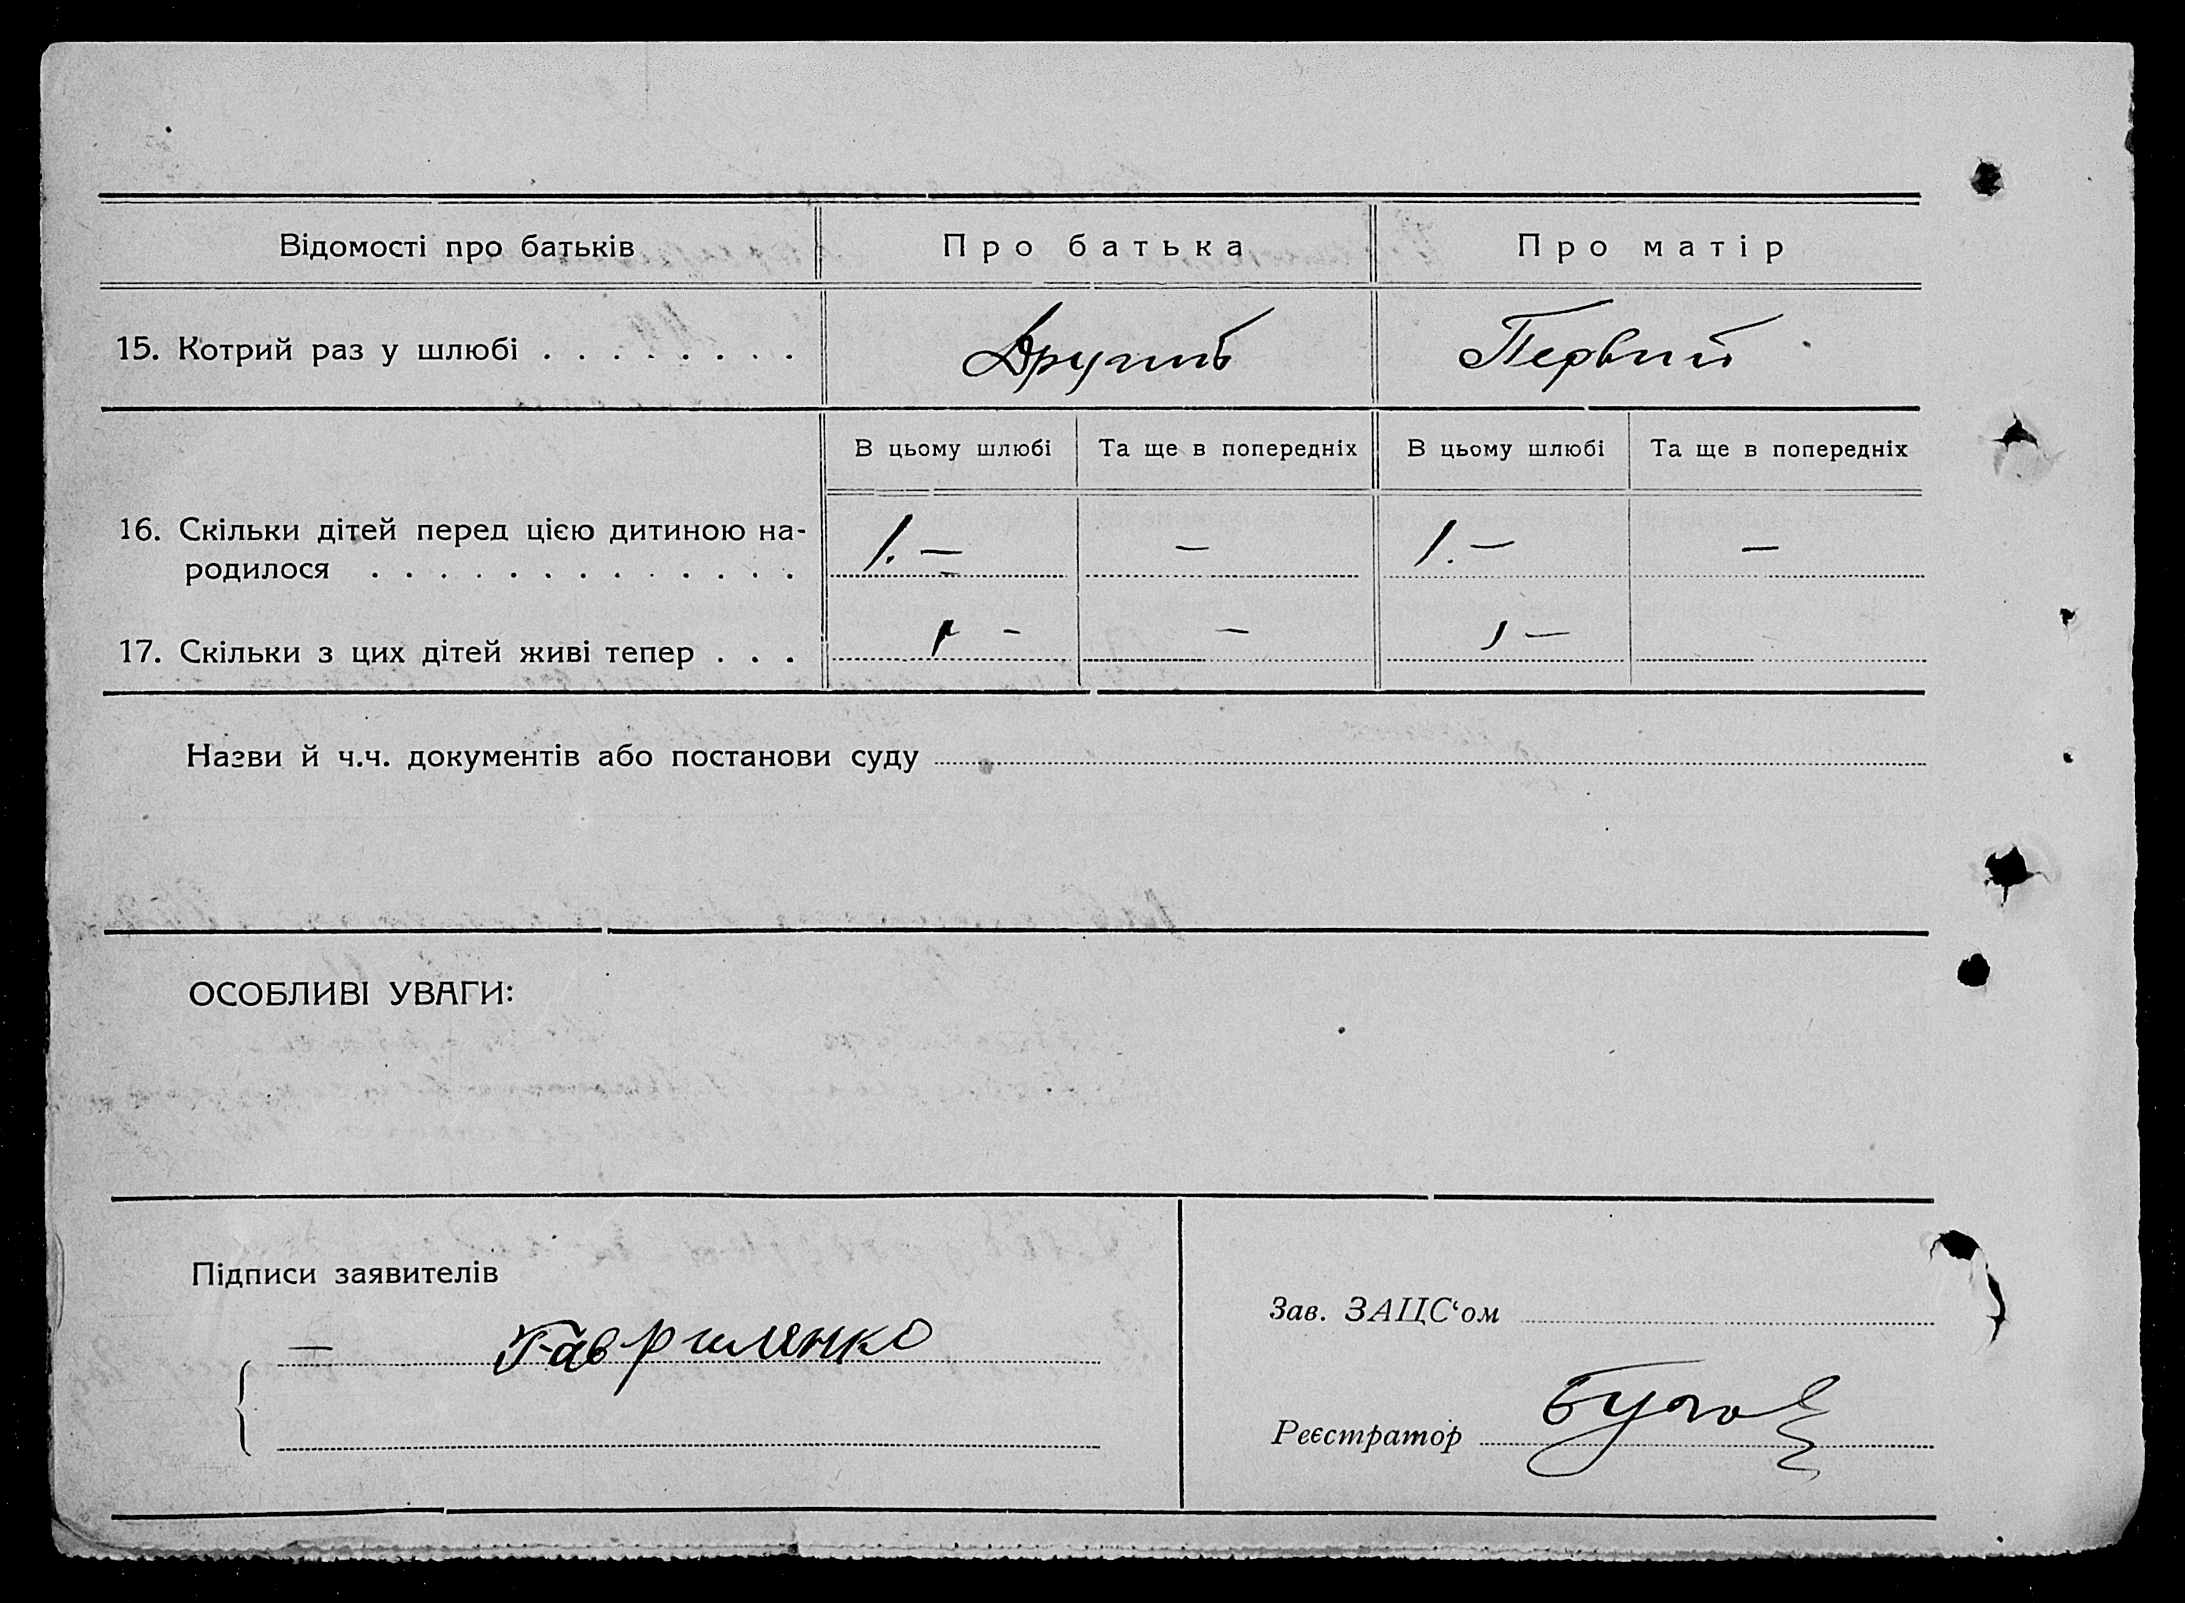 Відомості про батьків Про батька Про матір
15. Котрий раз у шлюбі . . . . . . . . Другий Первий
В цьому шлюбі Та ще в попередніх В цьому шлюбі Та ще в попередніх
16. Скільки дітей перед цією дитиною на-
родилося . . . . . . . . . . . . . 1. — — 1. — —
17. Скільки з цих дітей живі тепер . . . 1 — — 1 —
Назви й ч.ч. документів або постанови суду
ОСОБЛИВІ УВАГИ:
Підписи заявителів
— Гавриленко
Зав. ЗАЦС‘ом
Реєстратор